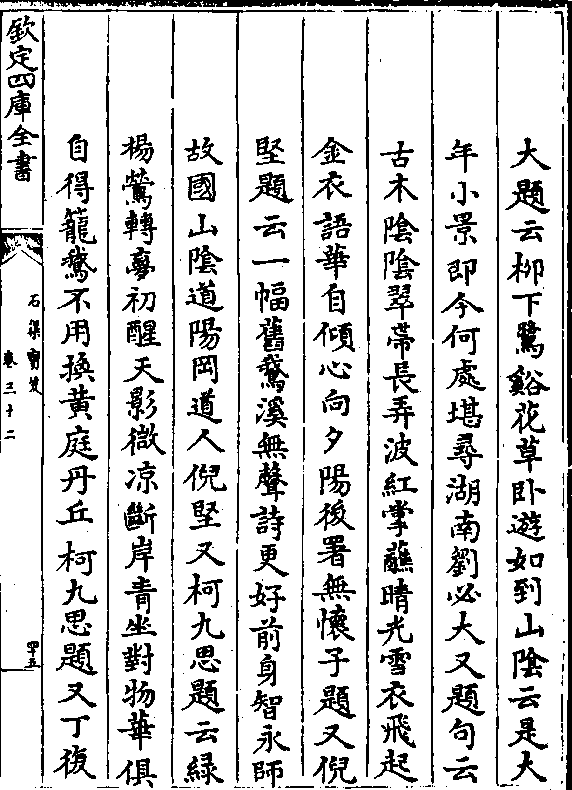 大題云柳下鵞谿花草卧遊如到山陰云是大
年小景即今何處堪尋湖南劉必大又題句云
古木陰陰翠帶長弄波紅掌蘸晴光雪衣飛起
金衣語華自傾心向夕陽後署無懷子題又倪
堅題云一幅舊鵞溪無聲詩更好前身智永師
故國山陰道陽岡道人倪堅又柯九思題云緑
楊鶯轉夢初醒天影微凉斷岸青坐對物華俱
自得籠鵞不用換黄庭丹丘柯九思題又丁復
欽定四庫全書
石渠寶笈
卷三十二
四十五